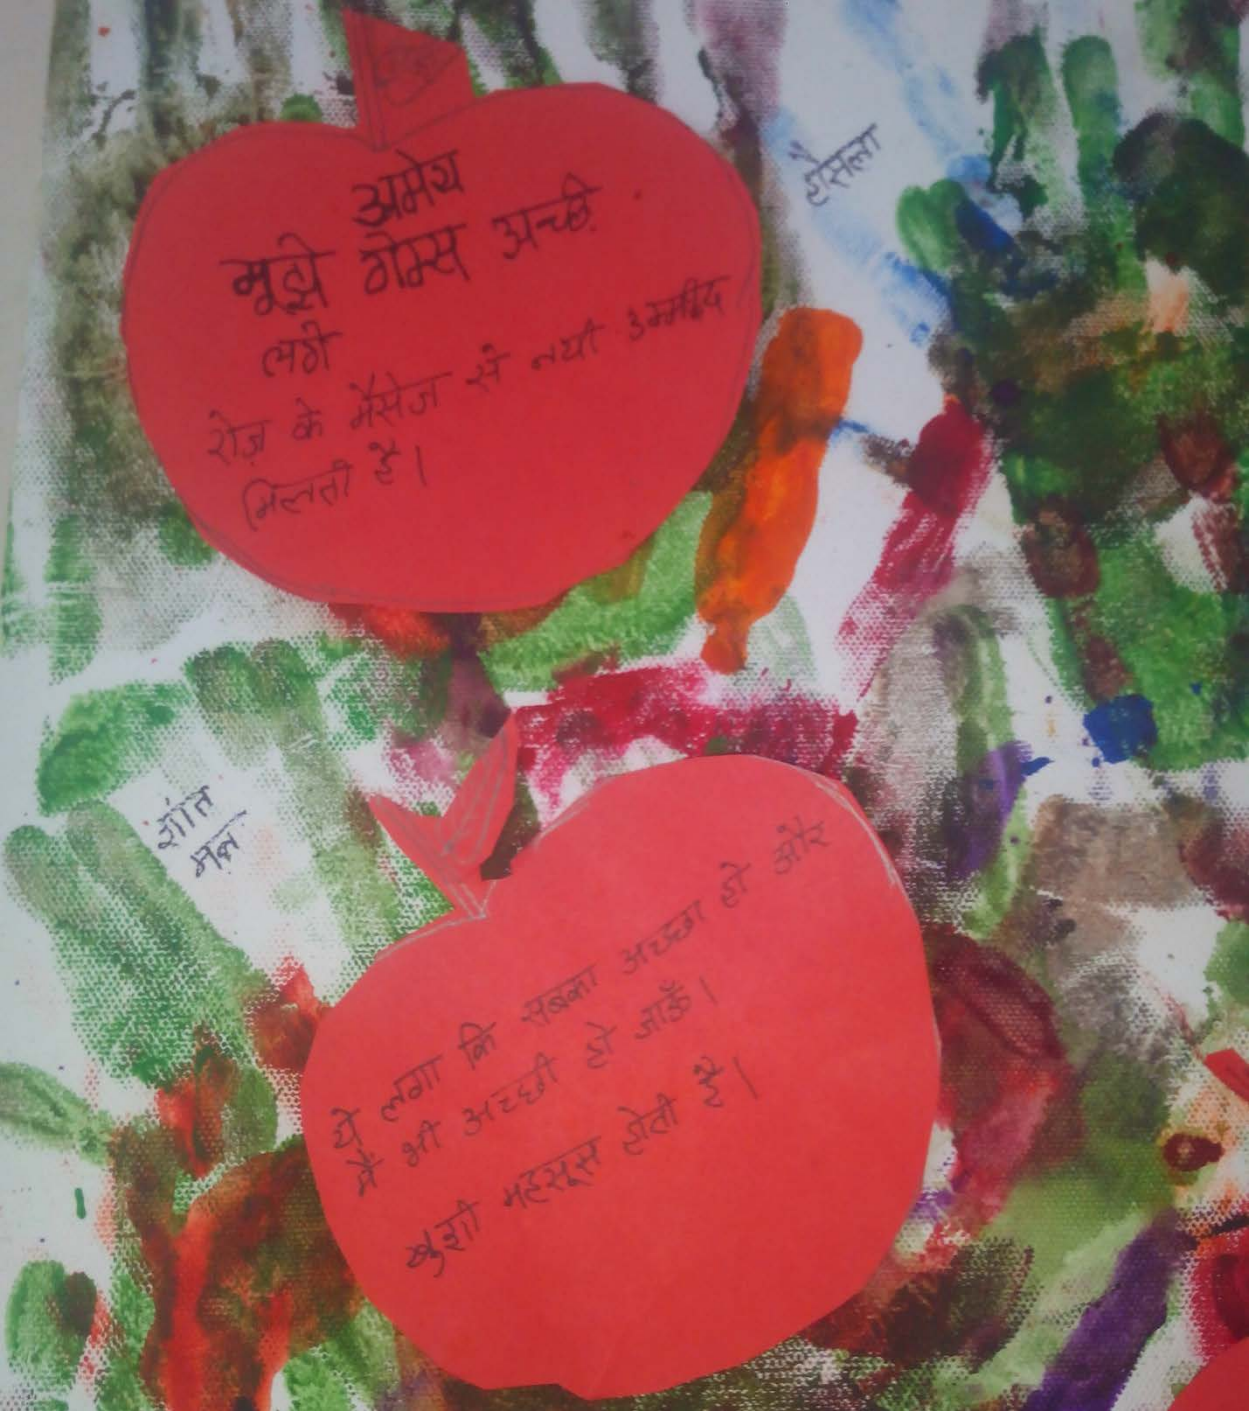 अमेय
मुझे गेम्स अच्छे
लगे
रोज़ के मैसेज से नयी उम्मीद
मिलती है।
हौसला
शांत
मन
ये लगा कि सबका अच्छा हो और
मैं भी अच्छी हो जाऊँ।
खुशी महसूस होती है।